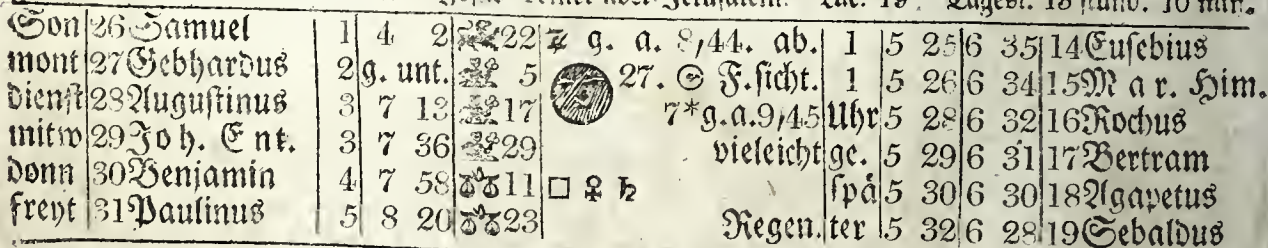 Jerusalem. Luc. 19. Tagesl. 13 stund. 10 min.
Son 26 Samuel 1 4 2 22 g. a. 8,44. ab. 1 5 25 6 35 14 Eusebius
mont 27 Gebhardus 2 g. unt. 5 27. ☉ F.sicht. 1 5 26 6 34 15 Mar. Him.
dienst 28 Augustinus 3 7 13 17 7*g.a.9,45 Uhr 5 28 6 32 16 Rochus
mitw 29 Joh. Ent. 3 7 36 29 vieleicht ge. 5 29 6 31 17 Bertram
donn 30 Benjamin 4 7 58 11 □ ♀ ♄ spä 5 30 6 30 18 Agapetus
freyt 31 Paulinus 5 8 20 23 Regen. ter 5 32 6 28 19 Sebaldus